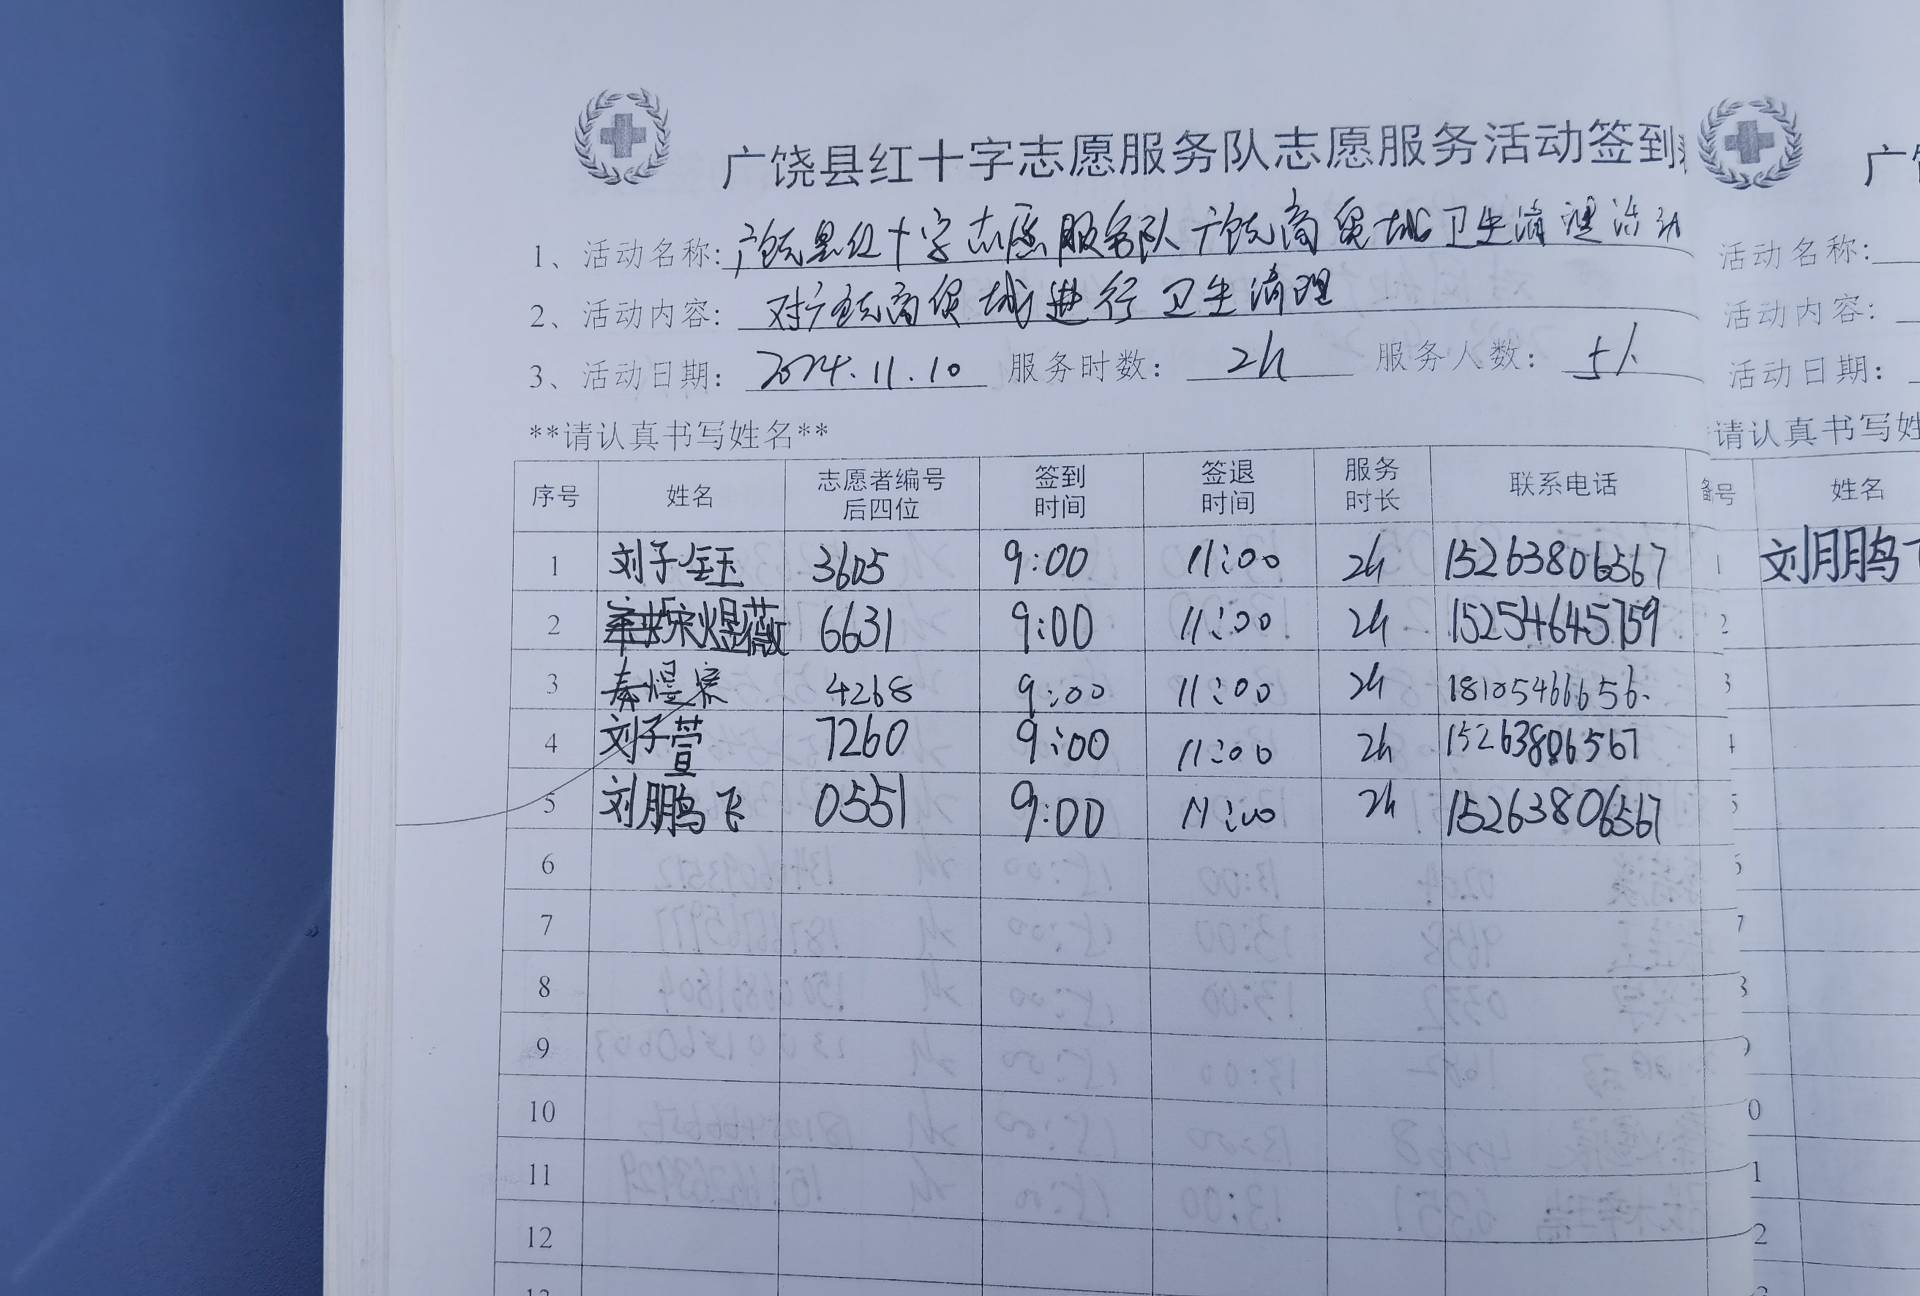 广饶县红十字志愿服务队志愿服务活动签到
1、活动名称:广饶县红十字志愿服务队广饶商贸城卫生清理活动
2、活动内容:对广饶商贸城进行卫生清理
3、活动日期:2024.11.10 服务时数:2h 服务人数:5人
**请认真书写姓名**
序号 姓名 志愿者编号后四位 签到时间 签退时间 服务时长 联系电话
1 刘子钰 3605 9:00 11:00 2h 15263806567
2 宋煜薇 6631 9:00 11:00 2h 15254645759
3 秦煜宸 4268 9:00 11:00 2h 18105466656
4 刘子萱 7260 9:00 11:00 2h 15263806567
5 刘鹏飞 0551 9:00 11:00 2h 15263806567
6
7
8
9
10
11
12
广
活动名称:
活动内容:
活动日期:
请认真书写姓
号 姓名
1 刘鹏
2
3